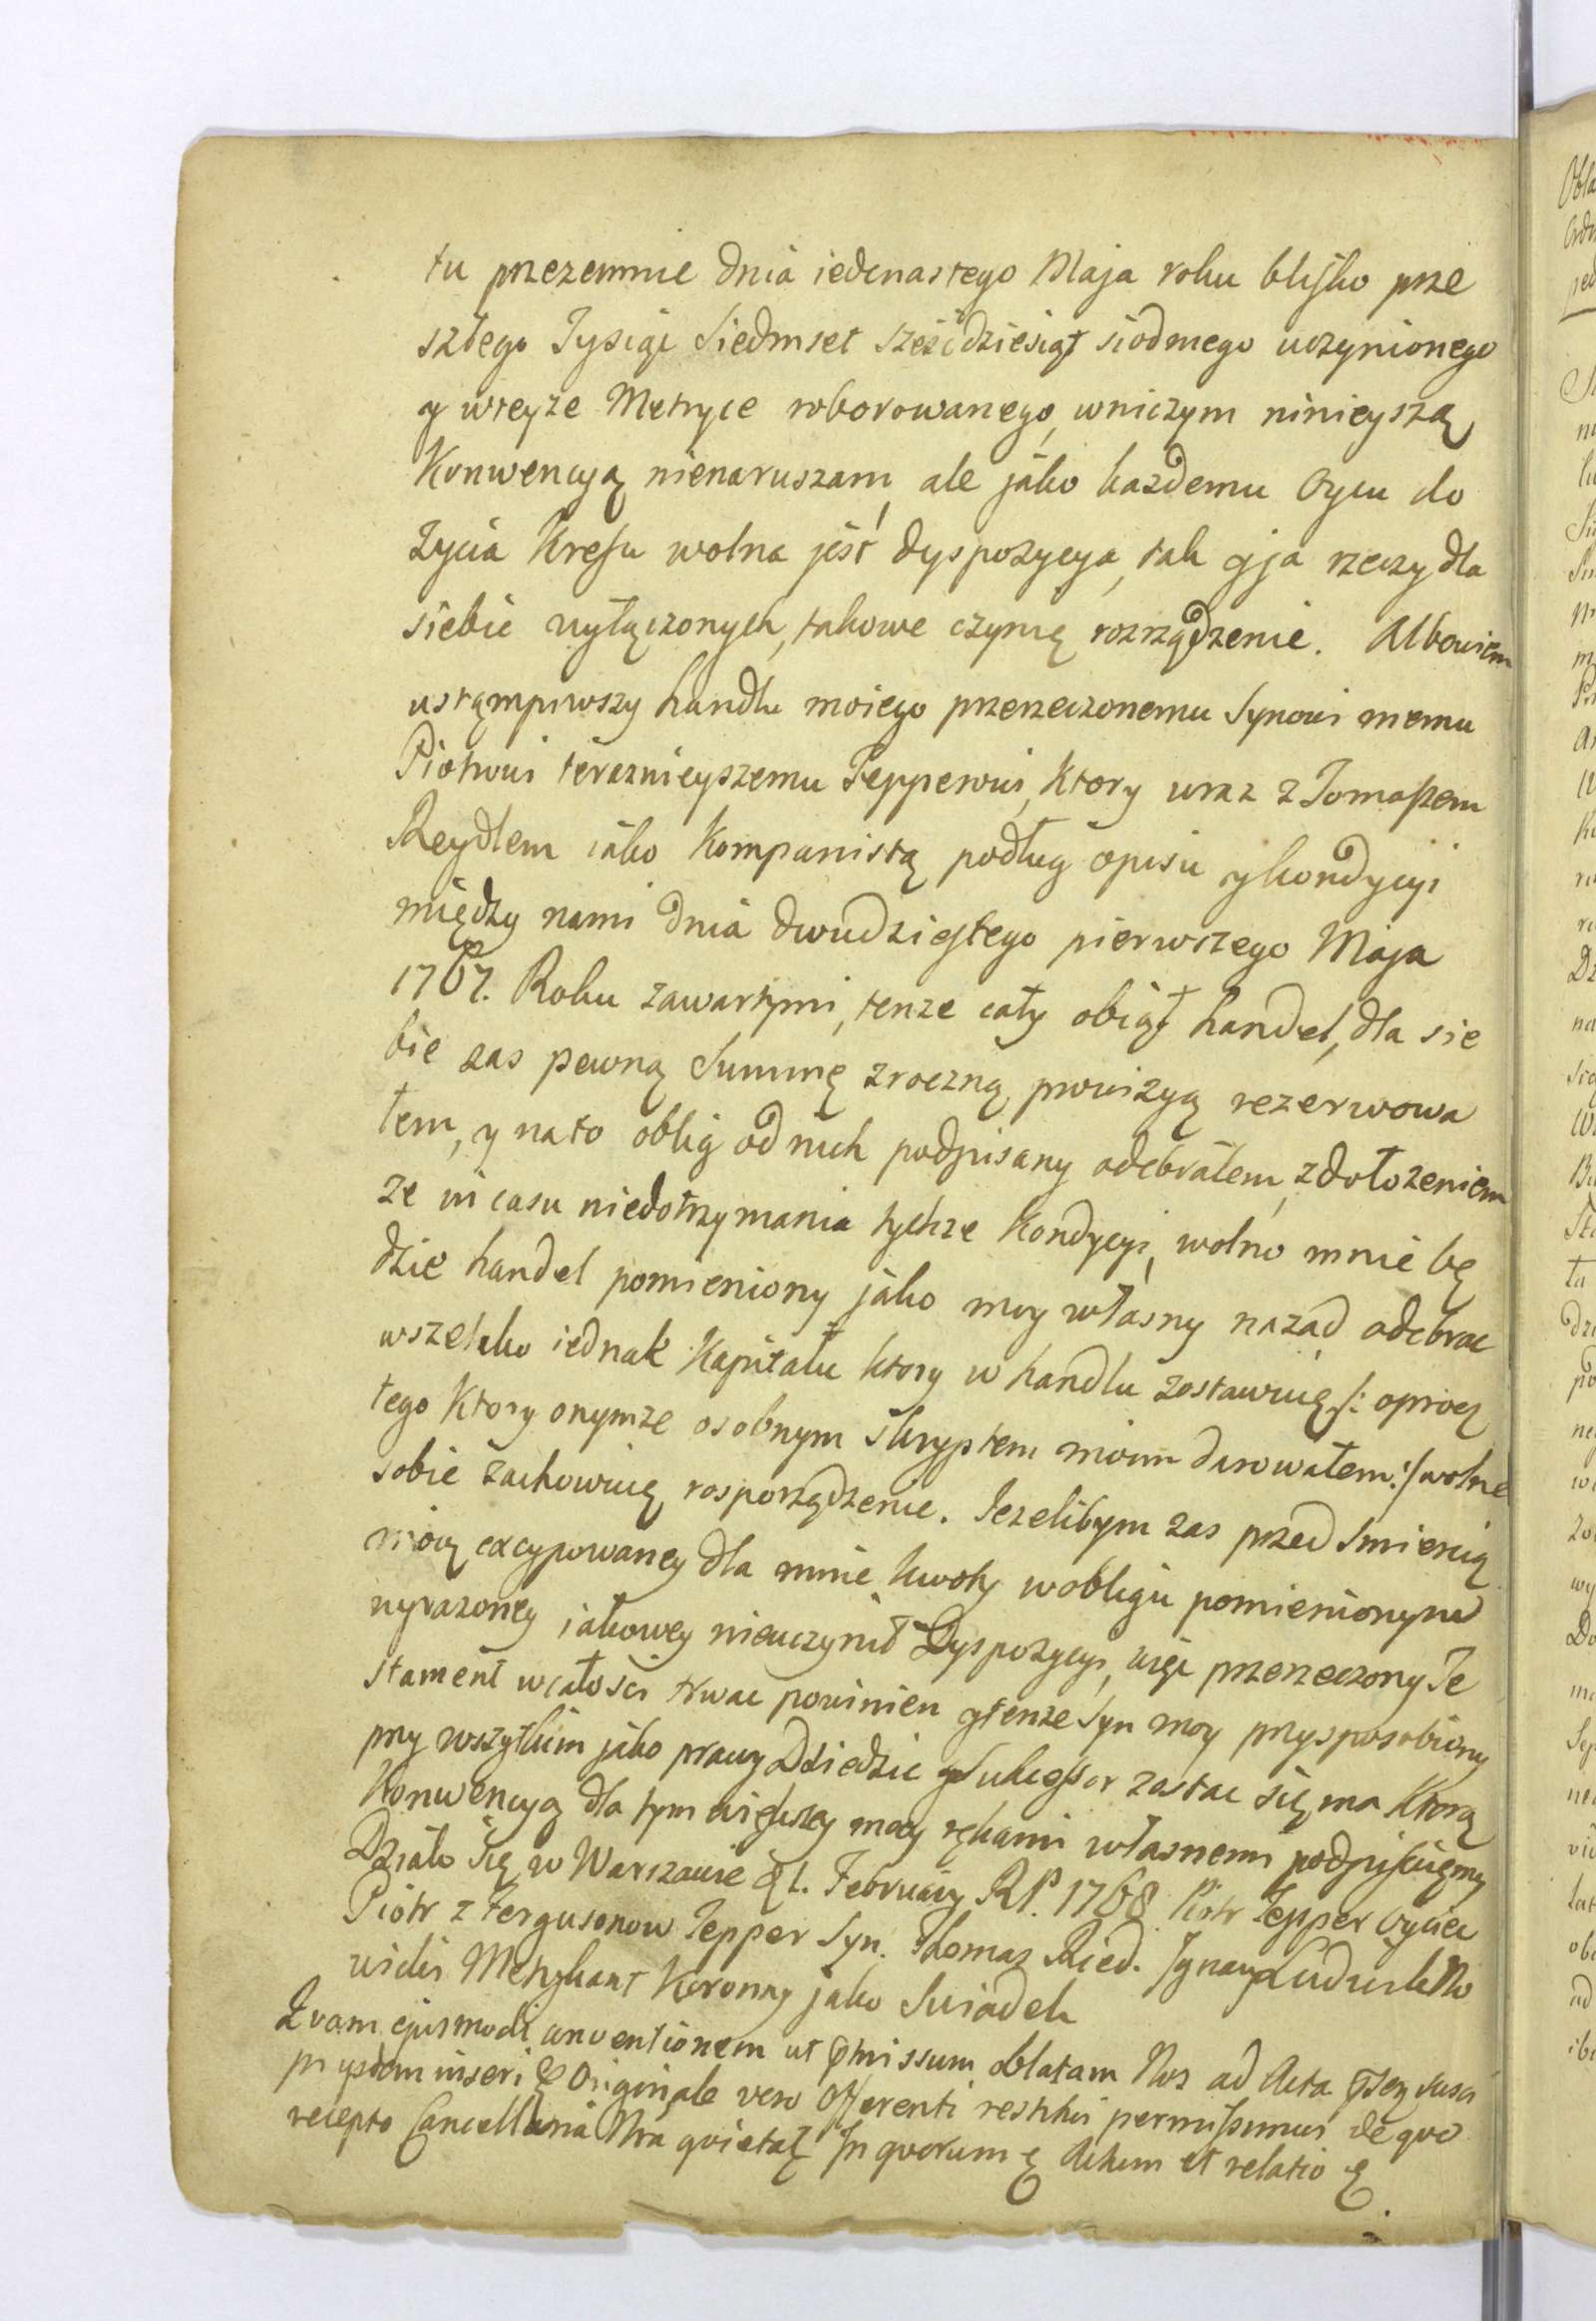 tu przezemnie dnia iedenastego Maja roku blisko prze
szłego Tysiąc Siedmset sześćdziesiąt siodmego uczynionego
y wteyże Metryce roborowanego, wniczym ninieyszą
Konwencyą nienaruszam, ale jako każdemu Oycu do
życia Kresu wolna jest dyspozycya, tak yja rzeczy dla
siebie wyłączonych, takowe czynię rozrządzenie. Albowiem
ustąmpiwszy handlu moiego przerzeczonemu Synowi memu
Piotrowi teraznieyszemu Tepperowi, ktory wraz z Tomaszem
Reydlem iako Kompanistą podług opisu ykondycyi
między nami dnia dwudziestego pierwszego Maja
1767. Roku zawartymi, tenze cały obiął handel, dla sie
bie zas pewną Summę zroczną prowizyą rezerwowa
łem, y na to oblig od nich podpisany odebrałem, zdołozeniem
ze in casu niedotrzymania tychze Kondycyi, wolno mnie bę
dzie handel pomieniony jako moy własny nazad odebrac
wszelako iednak Kapitału ktory w handlu zostawuię /: oprocz
tego ktory onymze osobnym skryptem moim darowałem :/ wolne
sobie zachowuię rosporządzenie. Jezelibym zas przed smiercią
moią excypowaney dla mnie kwoty wobligu pomienionym
wyrazoney iakowey nieuczynił Dyspozycyi, więc przerzeczony Te
stament wcałosci trwac powinien ytenze Syn moy przysposobiony
przy wszytkim jako prawy Dziedzic ySukcessor zostac się ma Ktorą
Konwencyą dla tym większey mocy rękami własnemi podpisuiemy
Działo się w Warszawie 21. February RP. 1768 Piotr Tepper Oyciec
Piotr z Fergusonow Tepper Syn. Thomas Ried. Ignacy
Metrykant Koronny jako Swiadek
Qvam ejusmodi conventionem ut pmissum oblatam Nos ad Acta
inseri & Originale vero Offerenti restitui permisimus de quo
recepto Cancellaria Nra quietat In quorum Actum et relatio